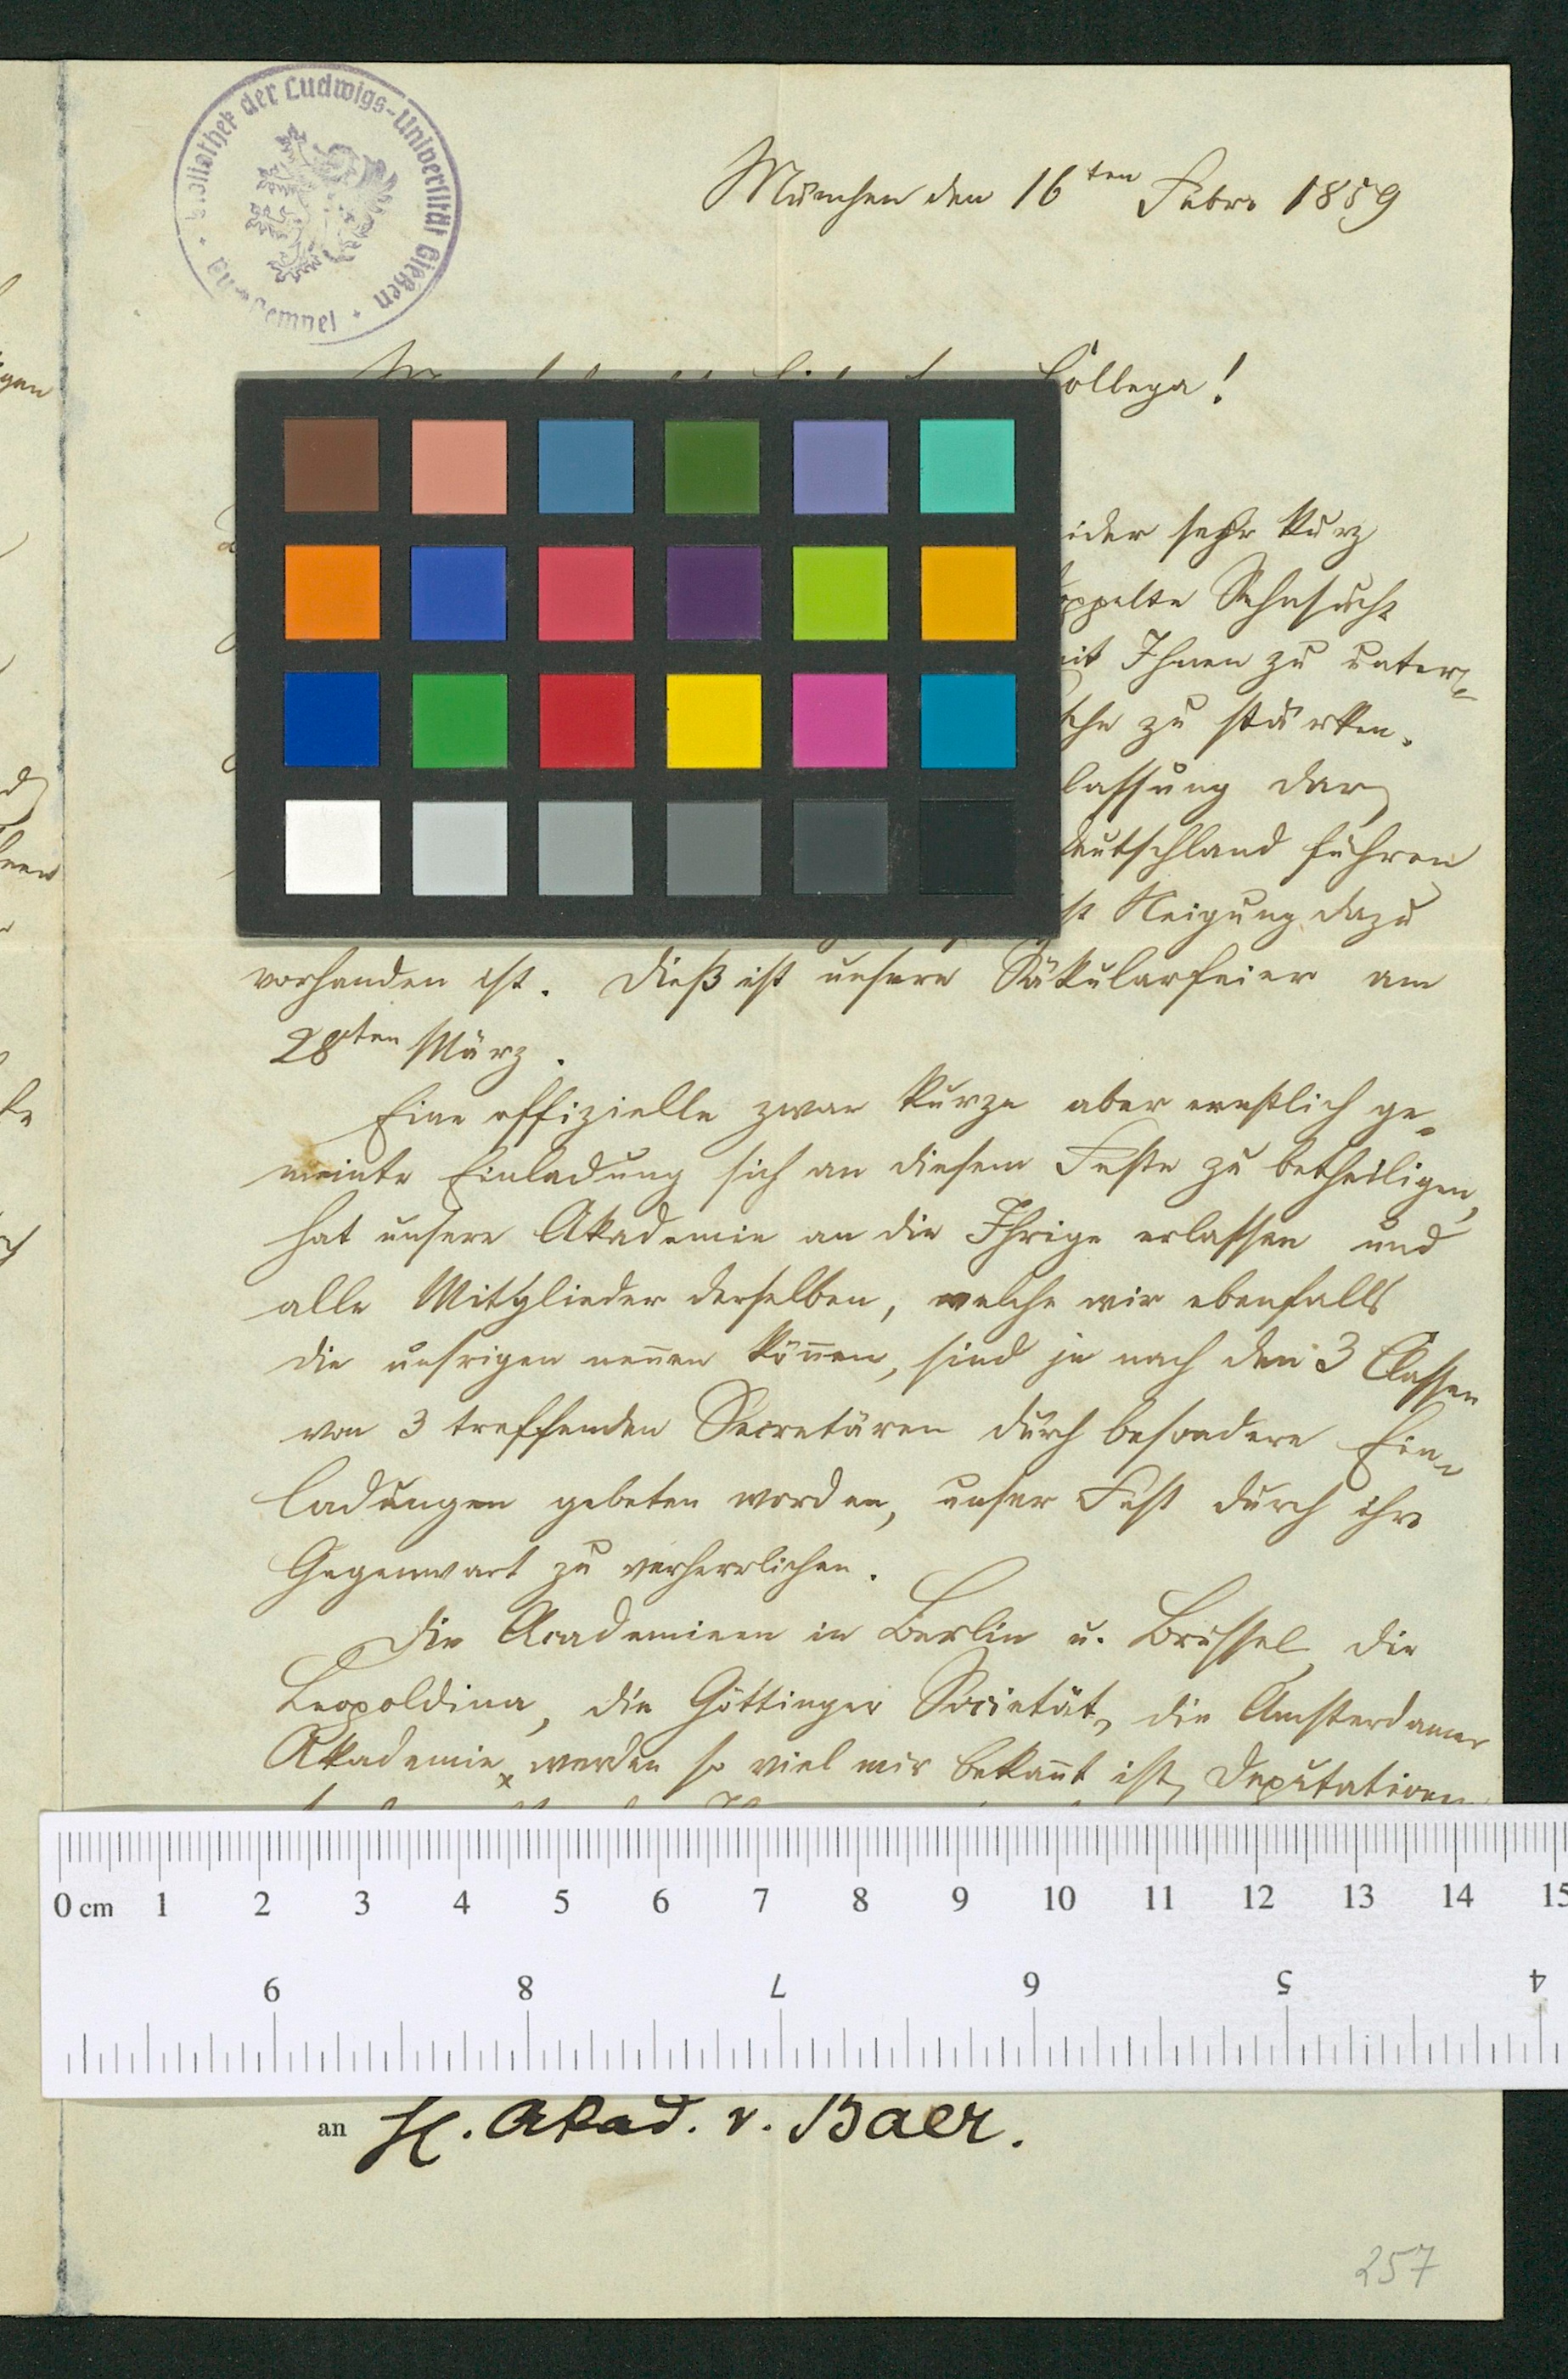 Bibliothek der Ludwigs-Universität Gießen
München den 16ten Febr. 1859
Collega!
sehr kurz
Sehnsucht
mit Ihnen zu unter-
zu stärken.
lassung dar,
Deutschland führen
ist Neigung dazu
vorhanden ist. Dieß ist unsere Säkularfeier am
28ten März.
Eine offizielle zwar kurze aber ernstlich ge-
meinte Einladung sich an diesem Feste zu betheiligen,
hat unsere Akademie an die Ihrige erlassen und
alle Mitglieder derselben, welche wir ebenfalls
die unsrigen nennen können, sind je nach den 3 Classen
von 3 treffenden Secretären durch besondere Ein-
ladungen gebeten worden, unser Fest durch ihre
Gegenwart zu verherrlichen.
Die Academieen in Berlin u. Brüssel, die
Leopoldina, die Göttinger Societät, die Amsterdamer
Akademie werden so viel mir bekannt ist, Deputationen
0 cm 1 2 3 4 5 6 7 8 9 10 11 12 13 14 15
9 8 7 6 5 4
an H. Akad. v. Baer.
257